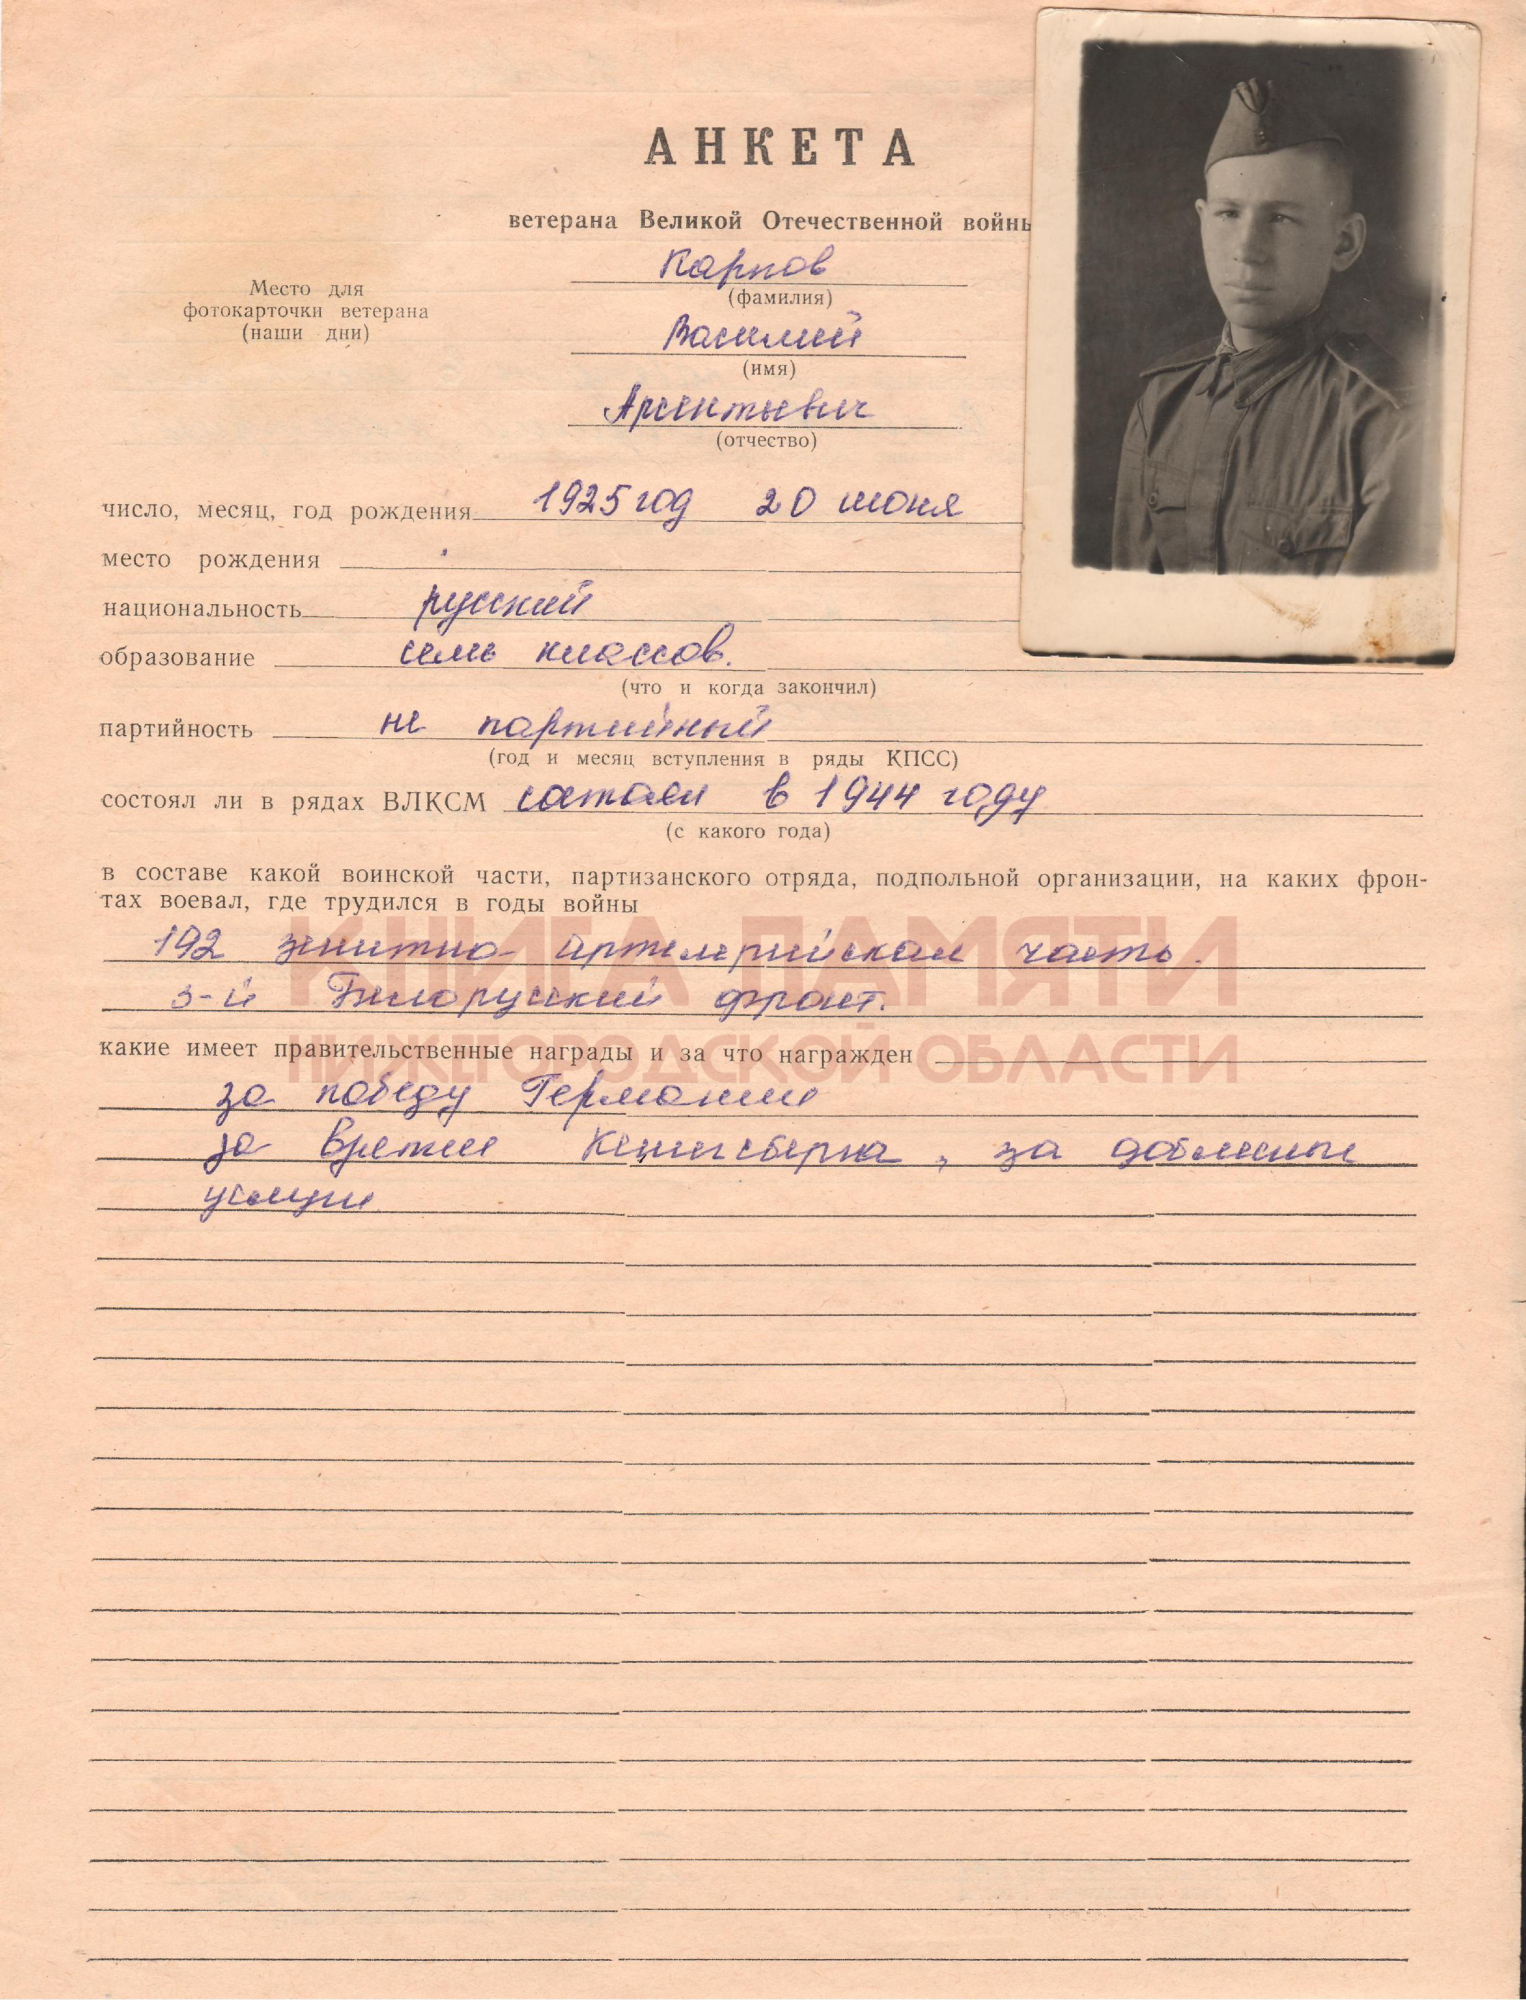 АНКЕТА
ветерана Великой Отечественной войны
Карпов
(фамилия)
Место для
фотокарточки ветерана
(наши дни)
Василий
(имя)
Арсентьевич
(отчество)
число, месяц, год рождения 1925 год 20 июня
место рождения
национальность русский
образование семь классов.
(что и когда закончил)
партийность не партийный
(год и месяц вступления в ряды КПСС)
состоял ли в рядах ВЛКСМ состоял в 1944 году
(с какого года)
в составе какой воинской части, партизанского отряда, подпольной организации, на каких фрон-
тах воевал, где трудился в годы войны
192 зенитно-артелерийская часть.
3-й Билорусский фронт.
какие имеет правительственные награды и за что награжден
за победу Германии
за
, за доблесные
услуги
КНИГА ПАМЯТИ
НИЖЕГОРОДСКОЙ ОБЛАСТИ